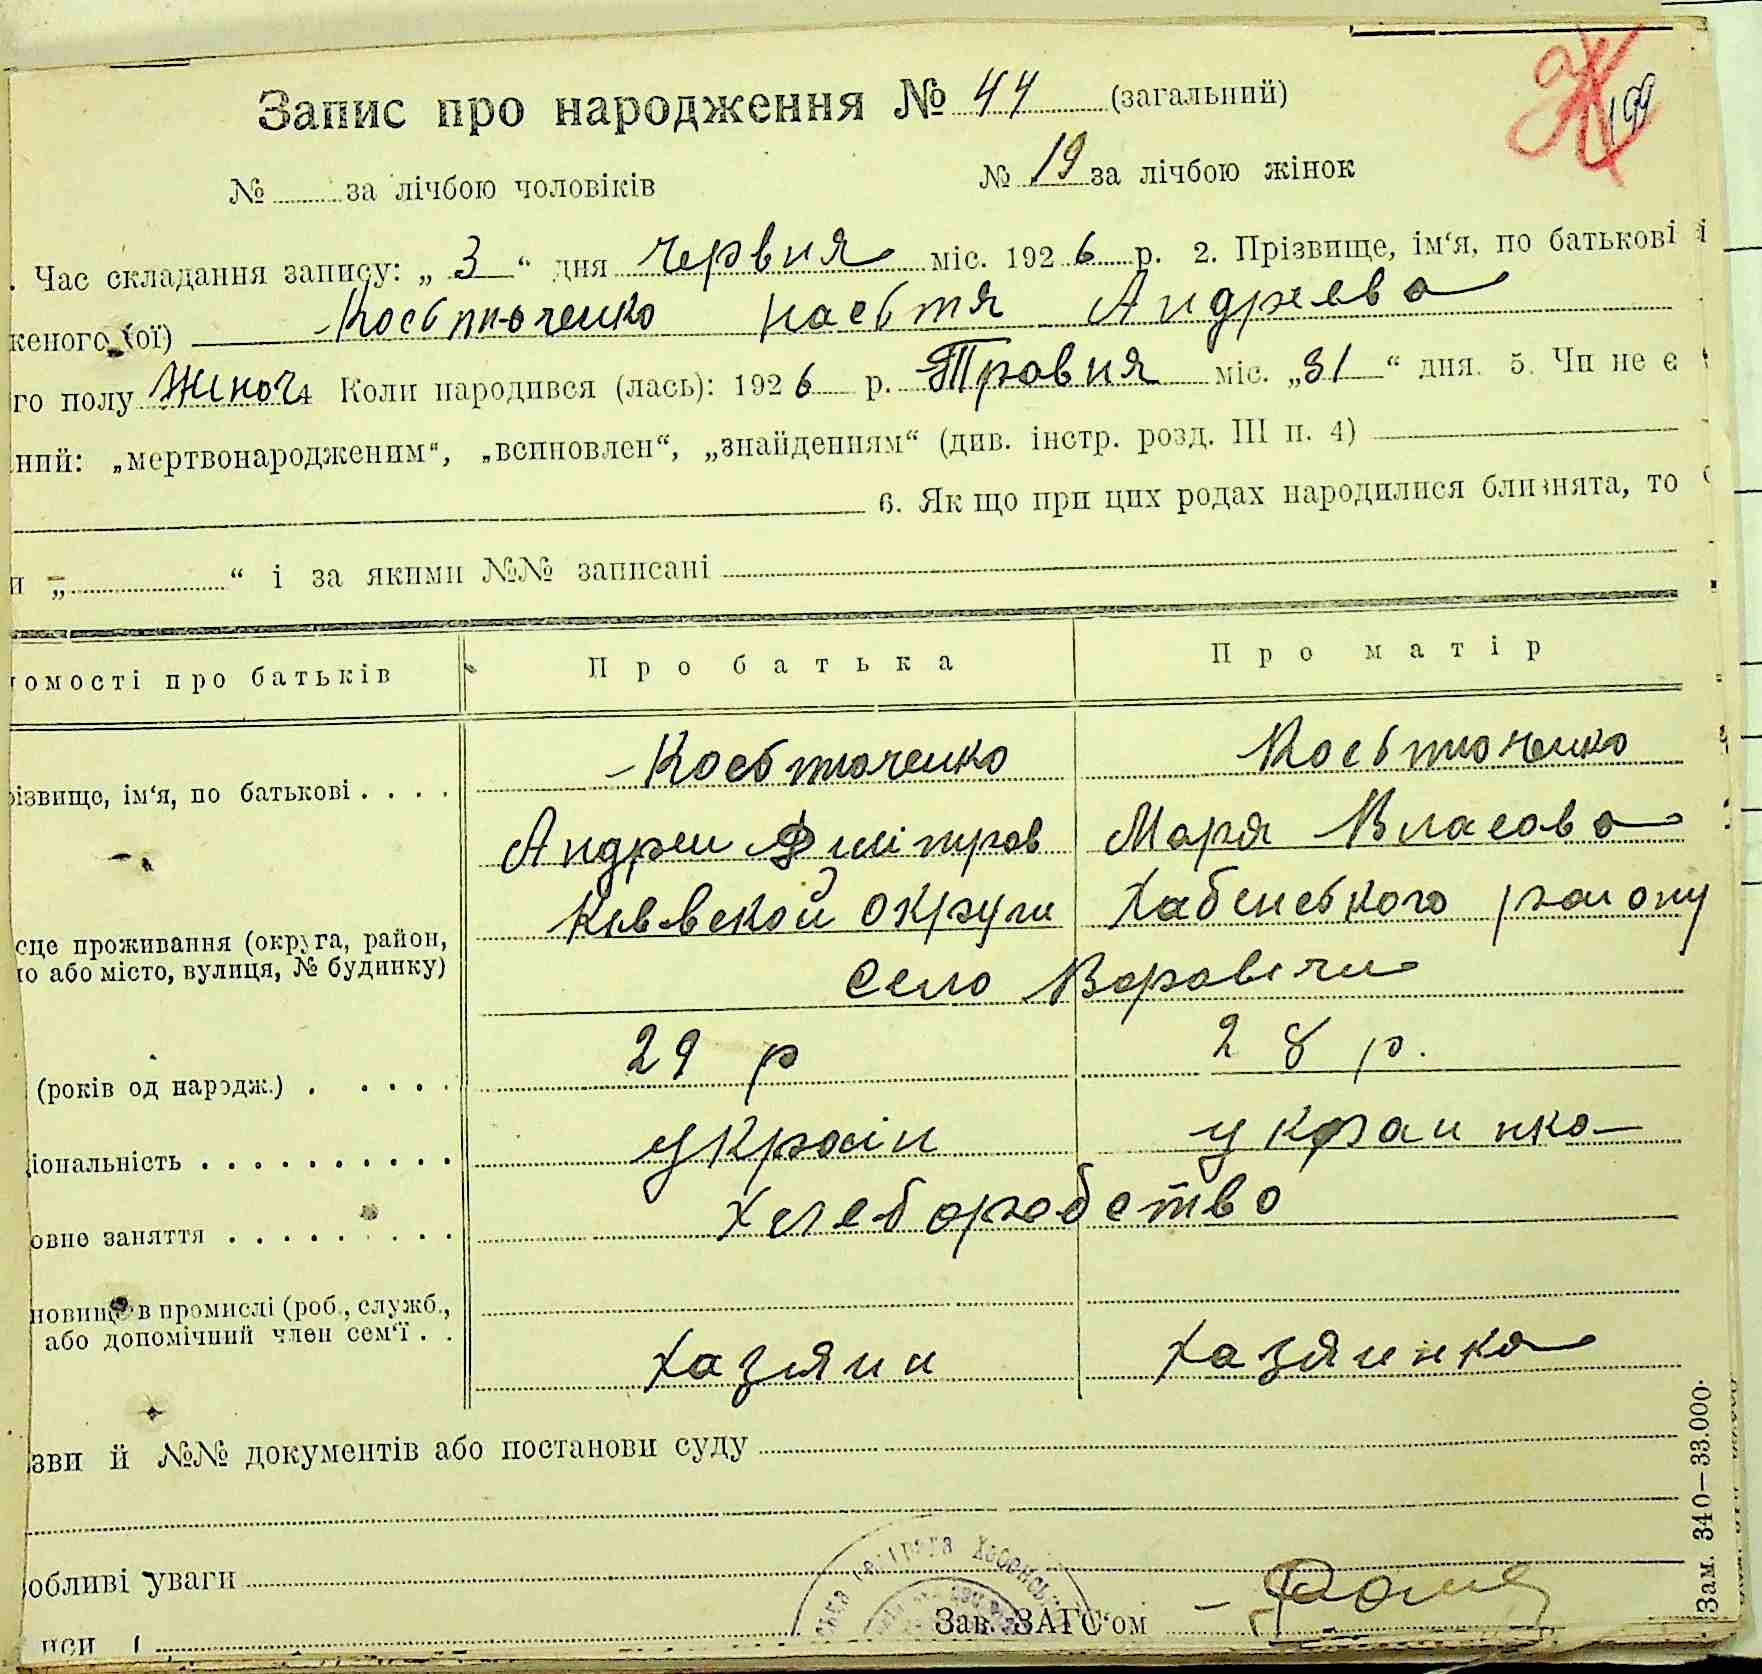 Запис про народження № 44 (загальний)
Ж 199
№ за лічбою чоловіків № 19 за лічбою жінок
. Час складання запису: „ 3 “ дня червня міс. 1926 р. 2. Прізвище, ім‘я, по батькові і
женого (ої) Косьтюченко Насьтя Андреева
го полу Жіноч. Коли народився (лась): 1926 р. Травня міс. „31“ дня. 5. Чи не є
ний: „мертвонародженим“, „всиновлен“, „знайденням“ (див. інстр. розд. III п. 4)
6. Як що при цих родах народилися близнята, то
и „ “ і за якими №№ записані
омості про батьків Про батька Про матір
різвище, ім‘я, по батькові . . . . Косьтюченко Косьтюченко
Андреи Филітров Мария Власова
сце проживання (округа, район, Київской округи Хабенського району
ло або місто, вулиця, № будинку)
Село Воровичи
(років од народж.) . . . . . 29 р 28 р.
ціональність . . . . . . . . . . Україн украинка
овне заняття . . . . . . . . . Хлеборобство
новище в промислі (роб., служб.,
або допомічний член сем‘ї . . Хазяин Хазяинка
зви й №№ документів або постанови суду
обливі уваги
Зав. ЗАГС‘ом
иси
Зам. 340—33.000.